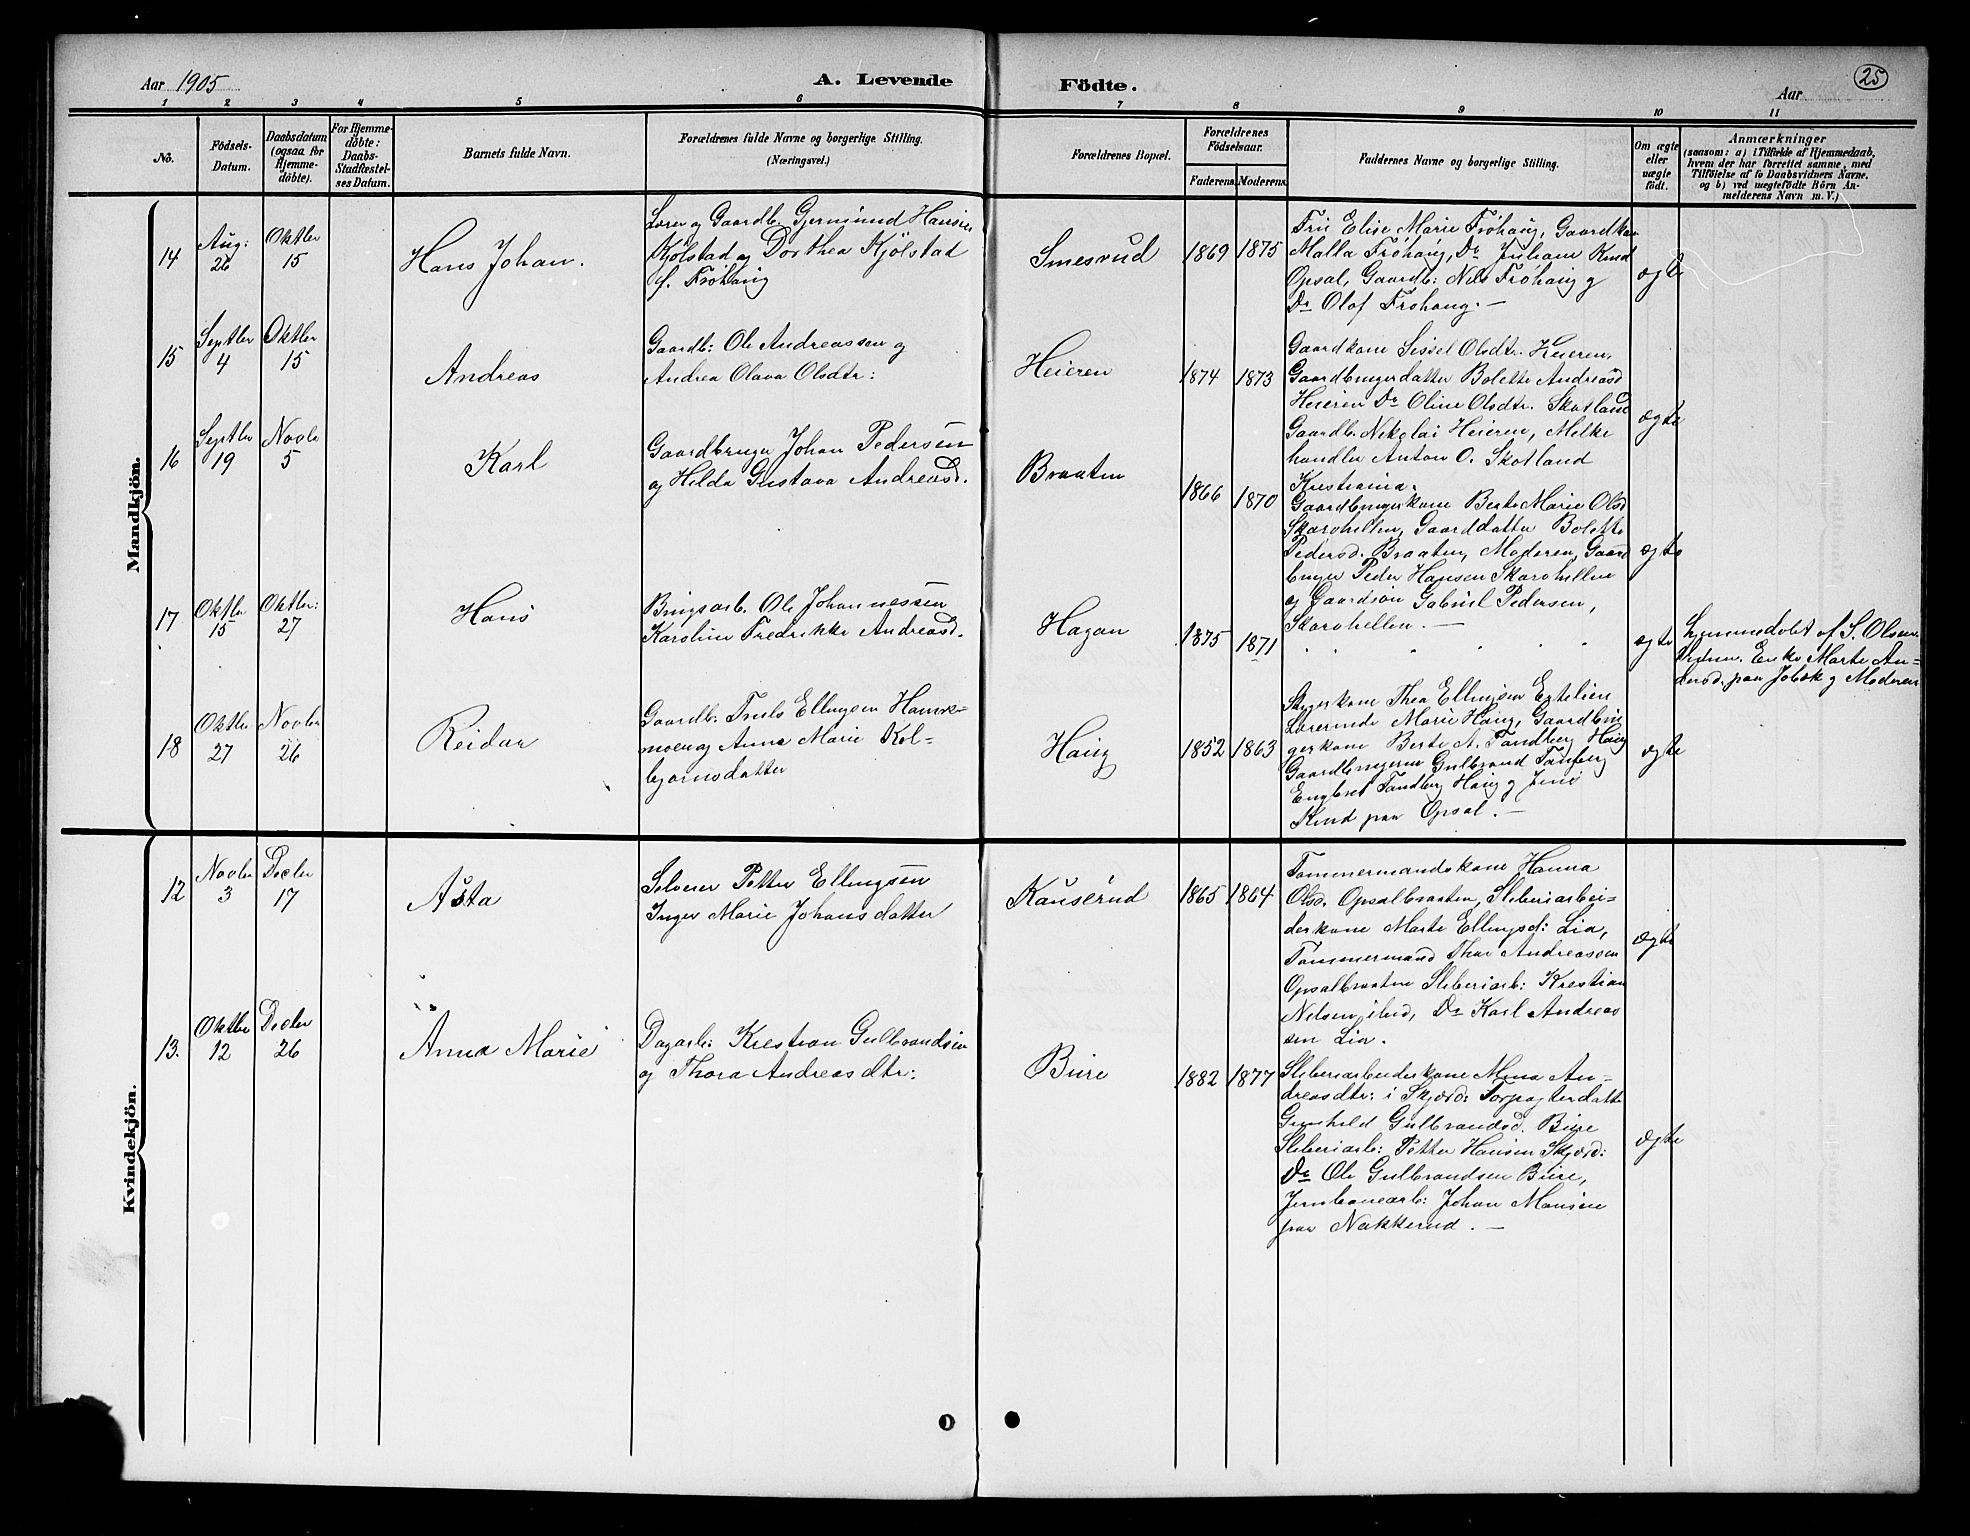 Aar 1905
A. Levende
Födte.
Aar
25
1 2 3 4 5 6 7 8 9 10 11
No.
Födsels-
Datum.
Daabsdatum
(ogsaa for
Hjemme-
döbte).
For Hjemme-
döbte:
Daabs-
Stadfæstel-
ses Datum.
Barnets fulde Navn.
Forældrenes fulde Navne og borgerlige Stilling.
(Næringsvei.)
Forældrenes Bopæl.
Forældrenes
Fødselsaar.
Faderens.
Moderens.
Faddernes Navne og borgerlige Stilling.
Om ægte
eller
uægte
födt.
Anmærkninger
(saasom: a) i Tilfælde af Hjemmedaab,
hvem der har forrettet samme, med
Tilföielse af to Daabsvidners Navne.
og b) ved uægtefödte Börn An-
melderens Navn m. V.)
Mandkjön.
14
Aug:
26
Oktbr
15
Hans Johan.
og Gaardb. Gjermund Hansen
Kjölstad og Dorthea Kjölstad
f. Fröhaug
Smesrud
1869
1875
Fru Elise Marie Fröhaug, Gaardkon
Malla Fröhaug, Do Juliane Rud
Opsal, Gaardb: Nils Fröhaug og
Do Olof Fröhaug. —
ægte
15
Septbr
4
Oktbr
15
Andreas
Gaardb: Ole Andreassen og
Andrea Olava Olsdtr:
Heieren
1874
1873
Gaardkone Sissel Olsdtr. Heieren,
Gaardbrugerdatter Bolette Andreasd
Heieren Do Oline Olsdtr. Skotland
Gaardb. Nikolai Heieren, Melke
handler Anton O. Skotland
Kristiania.
ægte
16
Septbr
19
Novbr
5
Karl
Gaardbruger Johan Pedersen
og Hilda Gustava Andreasd.
Braaten
1866
1870
Gaardbrugerkone Berte Marie Olsd
Skarohellen, Gaarddatter Bolette
Pedersd. Braaten, Moderen, Gaard
bruger Peder Hansen Skarohellen
og Gaardsön Gabriel Pedersen,
Skarohellen. —
ægte
17
Oktbr
15
Oktbr:
27
Hans
Brugsarb. Ole Johannessen
Karoline Fredrikke Andreasd.
Hagan
1875
1871
ægte
hjemmedöbt af S. Olsen
Enke Marte An-
dersd. paa og Moderen
18
Oktbr
27
Novbr
26
Reidar
Gaardb: Truls Ellingsen
og Anne Marie Kol-
bjørnsdatter
Haug
1852
1863
Thea Ellingsen
Lærerinde Marie Haug, Gaardbru
gerkone Berte A. Tandberg Haug
Gaardbrugerne Gulbrand Tanberg
Engbret Tandberg Haug og Jens
Rud paa Opsal. —
ægte
Kvindekjön.
12
Novbr
3
Decbr
17
Åsta
Selveier Petter Ellingsen
Inger Marie Johansdatter
Kauserud
1865
1864
Tommermandskone Hanna
Olsd. Opsalbraaten, Sliberiarbei-
derkone Marte Ellingsd: Lia,
Tommermand Thor Andreassen
Opsalbraaten Sliberiarb: Kristian
Nelsen ibid, Do Karl Andreas
sen Lia.
ægte
13.
Oktbr
12
Decbr
26
Anna Marie
Dagarb: Krestian Gulbrandsen
og Thora Andreasdtr:
Bure
1882
1877
Sliberiarbeiderskone Mina An-
dreasdtr: i Skjærd: Forpagterdatte
Gunhild Gulbrandsd. Bure
Sliberiarb: Petter Hansen Skjærd:
Do Ole Gulbrandsen Bure,
Jernbanearb: Johan Monsen
paa Nakkerud. —
ægte